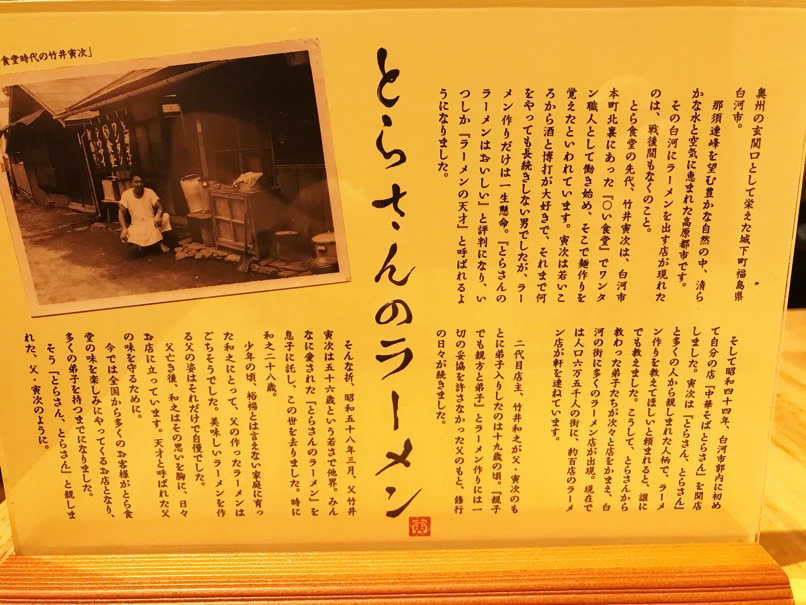 奥州の玄関口として栄えた城下町福島県
白河市。
那須連峰を望む豊かな自然の中、清ら
かな水と空気に恵まれた高原都市です。
その白河にラーメンを出す店が現れた
のは、戦後間もなくのこと。
とら食堂の先代、竹井寅次は、白河市
本町北裏にあった『〇い食堂』でワンタ
ン職人として働き始め、そこで麺作りを
覚えたといわれています。寅次は若いこ
ろから酒と博打が大好きで、それまで何
をやっても長続きしない男でしたが、ラー
メン作りだけは一生懸命。『とらさんの
ラーメンはおいしい』と評判になり、い
つしか『ラーメンの天才』と呼ばれるよ
うになりました。
そして昭和四十四年、白河市郭内に初め
て自分の店『中華そばとらさん』を開店
しました。寅次は『とらさん、とらさん』
と多くの人から親しまれた人柄で、ラーメ
ン作りを教えてほしいと頼まれると、誰に
でも教えました。こうして、とらさんから
教わった弟子たちが次々と店をかまえ、白
河の街に多くのラーメン店が出現。現在で
は人口六万五千人の街に、約百店のラーメ
ン店が軒を連ねています。
二代目店主、竹井和之が父・寅次のも
とに弟子入りしたのは十九歳の頃。『親子
でも親方と弟子』とラーメン作りには一
切の妥協を許さなかった父のもと、修行
の日々が続きました。
とらさんのラーメン
寅
食堂時代の竹井寅次」
そんな折、昭和五十八年三月、父竹井
寅次は五十六歳という若さで他界。みん
なに愛された『とらさんのラーメン』を
息子に託し、この世を去りました。時に
和之二十八歳。
少年の頃、裕福とは言えない家庭に育っ
た和之にとって、父の作ったラーメンは
ごちそうでした。美味しいラーメンを作
る父の姿はそれだけで自慢でした。
父亡き後、和之はその思いを胸に、日々
お店に立っています。天才と呼ばれた父
の味を守るために。
今では全国から多くのお客様がとら食
堂の味を楽しみにやってくるお店となり、
多くの弟子を持つまでになりました。
そう『とらさん、とらさん』と親しま
れた、父・寅次のように。